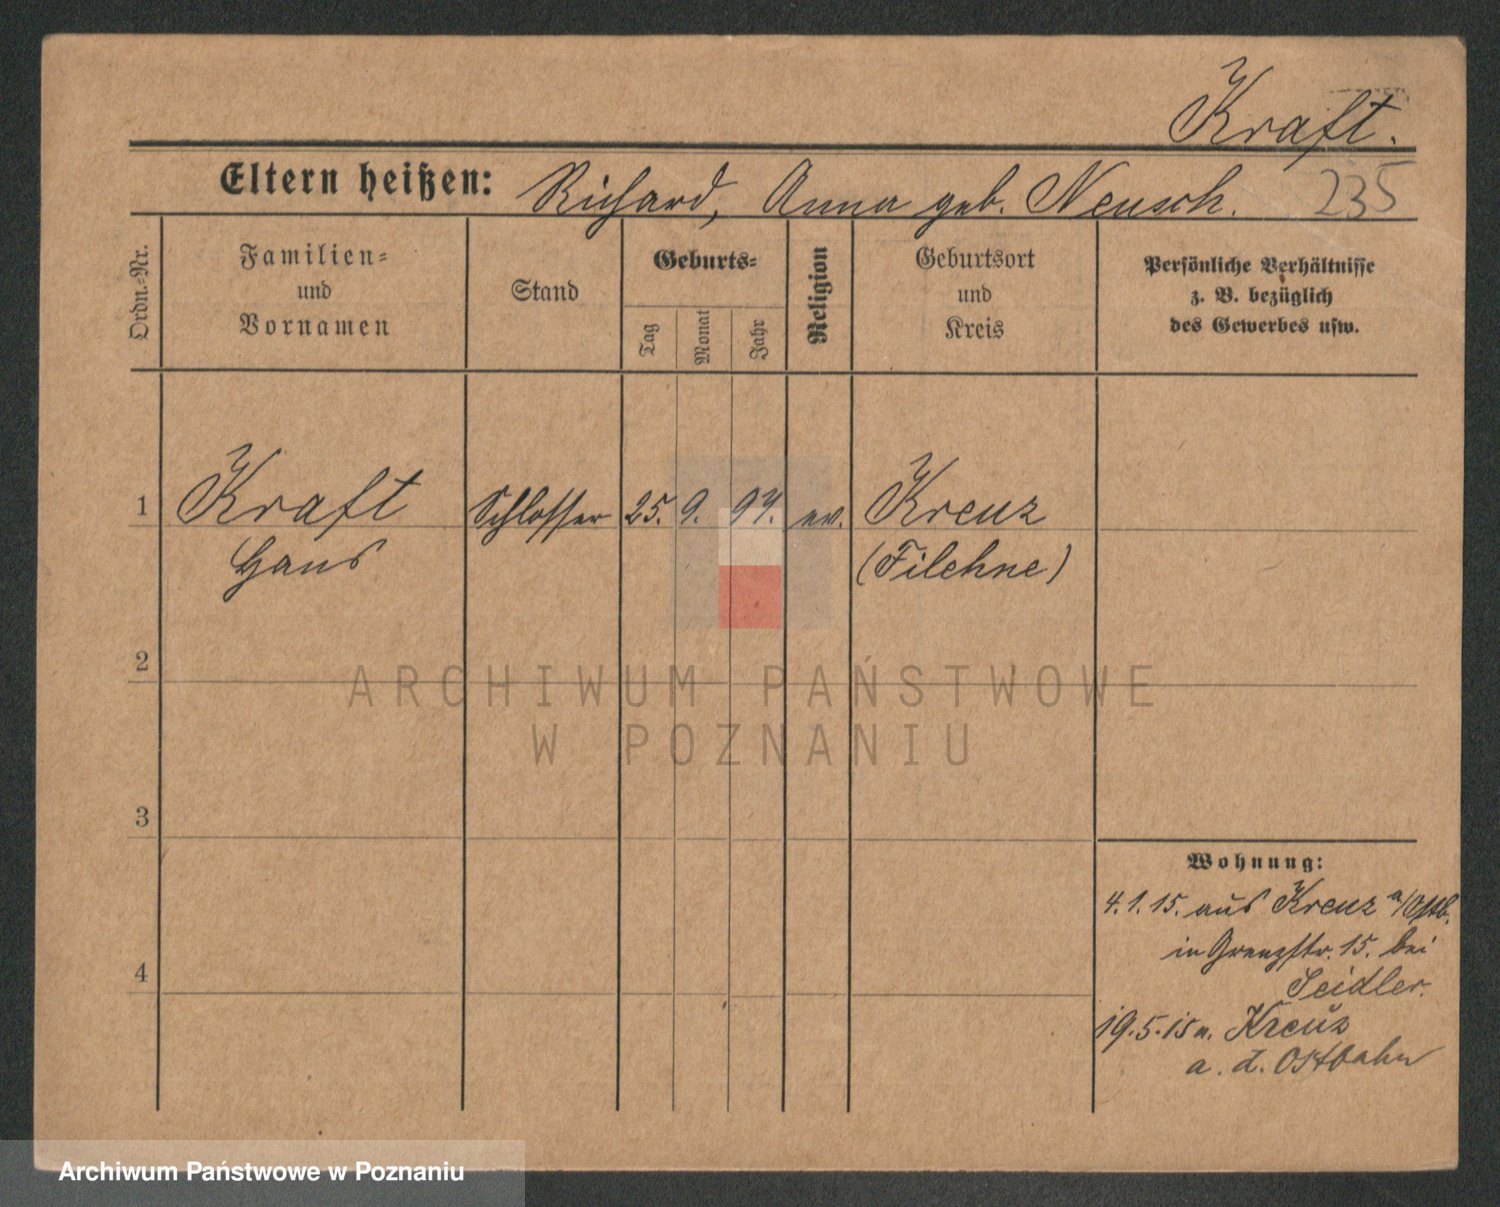 Kraft.
Eltern heißen: Richard, Anna geb. Neusch.
235
Ordn.-Nr.
Familien-
und
Vornamen
Stand
Geburts-
Tag
Monat
Jahr
Religion
Geburtsort
und
Kreis
Persönliche Verhältnisse
z. B. bezüglich
des Gewerbes usw.
1 Kraft Schlosser 25. 9. 97. ev. Kreuz
Hans (Filehne)
2
ARCHIWUM PAŃSTWOWE
W POZNANIU
3
Wohnung:
4.1.15. aus Kreuz a/Ostb.
in Grenzstr. 15. bei
Seidler.
4
19.5.15 n. Kreuz
a. d. Ostbahn
Archiwum Państwowe w Poznaniu